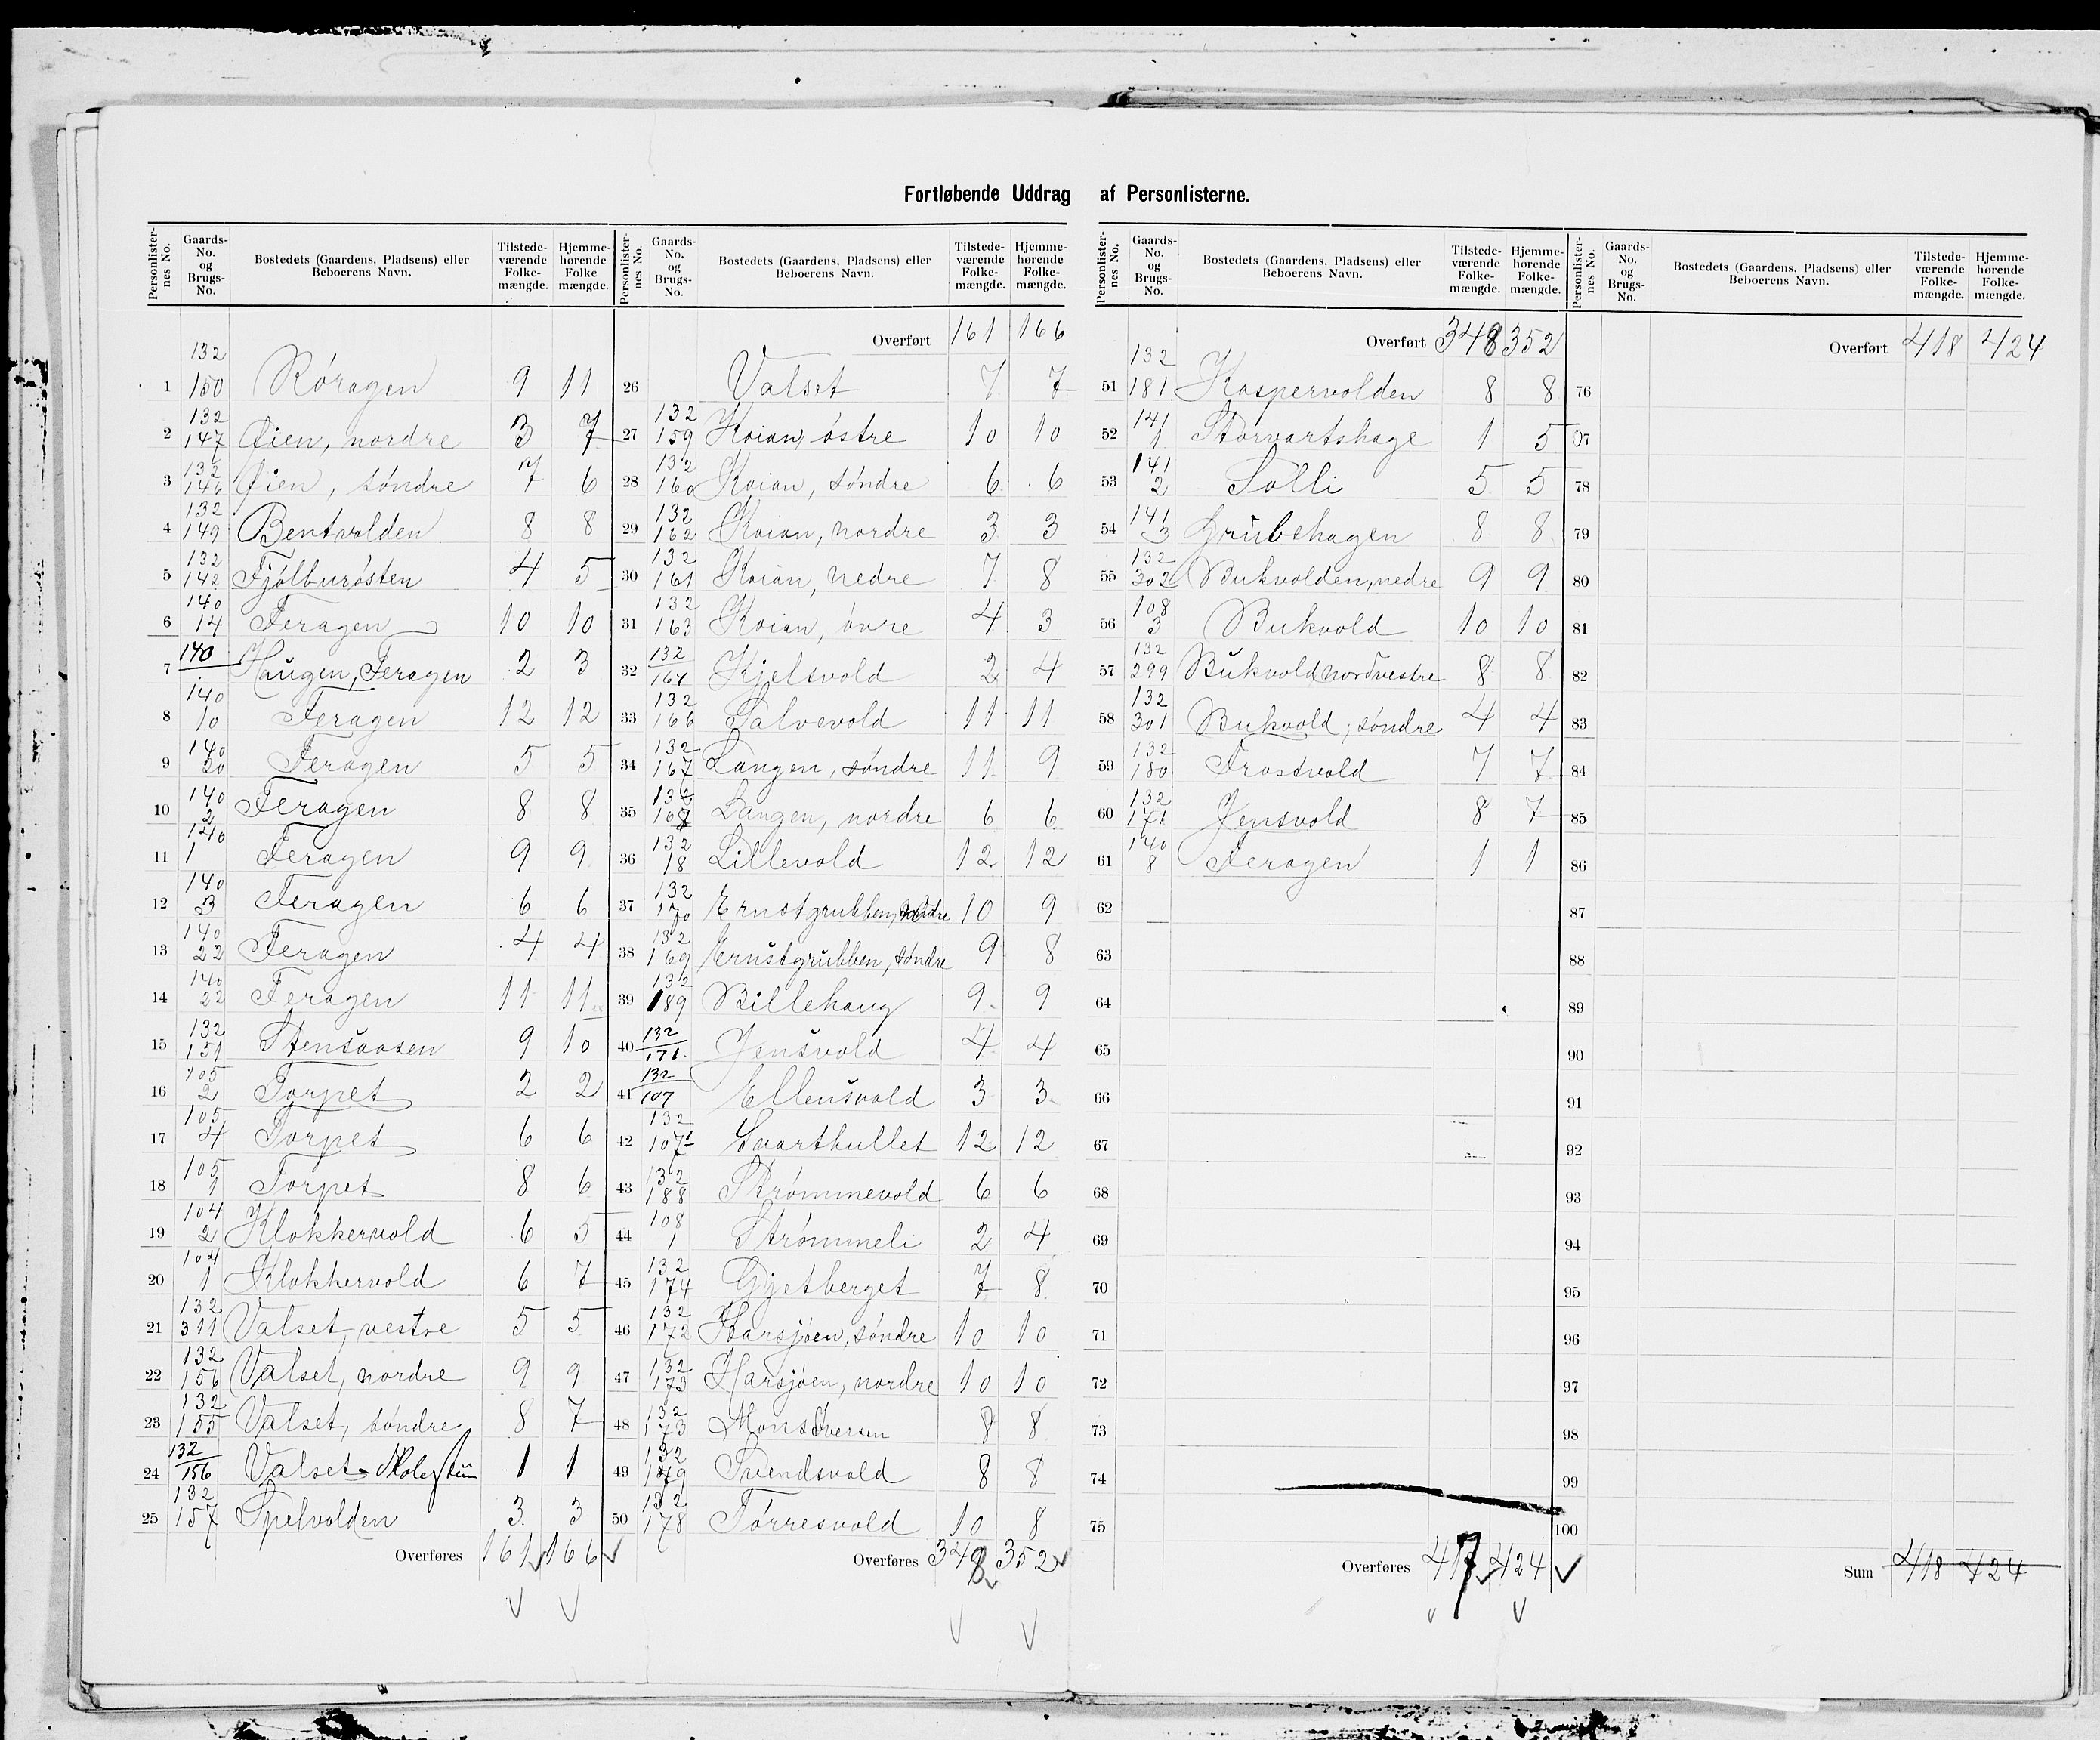 Fortløbende Uddrag af Personlisterne.
Personlisternes No. Gaards-No. og Brugs-No. Bostedets (Gaardens, Pladsens) eller Beboerens Navn. Tilstedeværende Folkemængde. Hjemmehørende Folkemængde.
1 132 150 Røragen 9 11
2 132 147 Øien, nordre 3 7
3 132 146 Øien, søndre 7 6
4 132 149 Bentvolden 8 8
5 132 142 Fjølburøsten 4 5
6 140 14 Feragen 10 10
7 140 Haugen, Feragen 2 3
8 140 10 Feragen 12 12
9 140 20 Feragen 5 5
10 140 2 Feragen 8 8
11 140 1 Feragen 9 9
12 140 3 Feragen 6 6
13 140 22 Feragen 4 4
14 140 22 Feragen 11 11
15 132 151 Stensaasen 9 10
16 105 2 Torpet 2 2
17 105 4 Torpet 6 6
18 105 1 Torpet 8 6
19 104 2 Klokkervold 6 5
20 104 1 Klokkervold 6 7
21 132 311 Valset, vestre 5 5
22 132 156 Valset, nordre 9 9
23 132 155 Valset, søndre 8 7
24 132 156 Valset 1 1
25 132 157 Spelvolden 3 3
Overføres 161 166
Personlisternes No. Gaards-No. og Brugs-No. Bostedets (Gaardens, Pladsens) eller Beboerens Navn. Tilstedeværende Folkemængde. Hjemmehørende Folkemængde.
Overført 161 166
26 Valset 7 7
27 132 159 Koian, østre 10 10
28 132 160 Koian, søndre 6 6
29 132 162 Koian, nordre 3 3
30 132 161 Koian, nedre 7 8
31 132 163 Koian, øvre 4 3
32 132 164 Kjelsvold 2 4
33 132 166 Salvevold 11 11
34 132 167 Langen, søndre 11 9
35 132 168 Langen, nordre 6 6
36 132 18 Lillevold 12 12
37 132 170 Ernstgrubben, nordre 10 9
38 132 169 Ernstgrubben, søndre 9 8
39 132 189 Billehaug 9 9
40 132 171 Jensvold 4 4
41 132 107 Ellensvold 3 3
42 132 107 Svarthullet 12 12
43 132 188 Strømmevold 6 6
44 108 1 Strømmeli 2 4
45 132 174 Gjetberget 7 8
46 132 172 Harsjøen, søndre 10 10
47 132 173 Harsjøen, nordre 10 10
48 132 173 Mons Iversen 8 8
49 132 179 Svendsvold 8 8
50 132 178 Tørresvold 10 8
Overføres 348 352
Personlisternes No. Gaards-No. og Brugs-No. Bostedets (Gaardens, Pladsens) eller Beboerens Navn. Tilstedeværende Folkemængde. Hjemmehørende Folkemængde.
Overført 348 352
51 132 181 Kaspervolden 8 8
52 141 1 Storvartshage 1 5
53 141 2 Solli 5 5
54 141 3 Grubehagen 8 8
55 132 302 Bukvolden, nedre 9 9
56 108 3 Bukvold 10 10
57 132 299 Bukvold nordvestre 8 8
58 132 301 Bukvold, søndre 4 4
59 132 180 Frostvold 7 7
60 132 171 Jensvold 8 7
61 140 8 Feragen 1 1
62
63
64
65
66
67
68
69
70
71
72
73
74
75
Overføres 417 424
Personlisternes No. Gaards-No. og Brugs-No. Bostedets (Gaardens, Pladsens) eller Beboerens Navn. Tilstedeværende Folkemængde. Hjemmehørende Folkemængde.
Overført 418 424
76
77
78
79
80
81
82
83
84
85
86
87
88
89
90
91
92
93
94
95
96
97
98
99
100
Sum 418 424